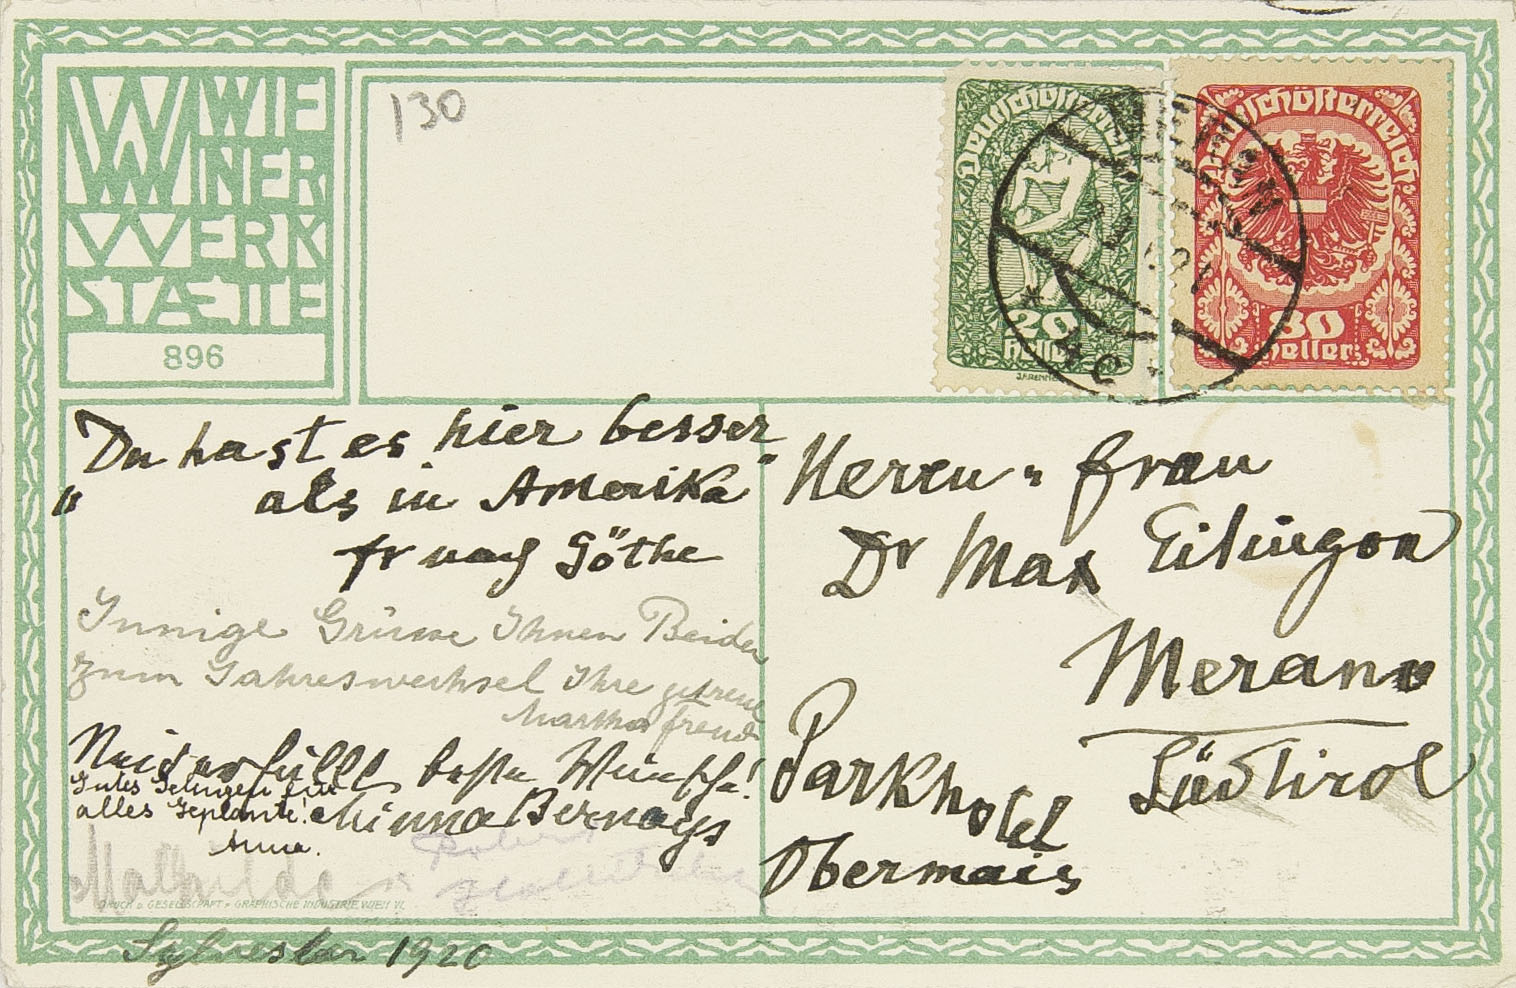 WIE
WINER
WERK
STÆTTE
896
130
Deutschösterreich
20
Heller
Deutschösterreich
80
Heller
WIEN
„Du hast es hier besser
als in Amerika“
fr nach Göthe
Innige Grüsse Ihnen Beiden
zum Jahreswechsel Ihre getreue
Martha Freud
Neiderfüllt beste Wünsche!
Minna Bernays
Gutes Gelingen für
alles Geplante!
Anna.
Mathilde
Robert
Hollitscher
DRUCK u. GESELLSCHAFT f. GRAPHISCHE INDUSTRIE, WIEN VI.
Sylvester 1920
Herrn u Frau
Dr Max Eitingon
Merano
Südtirol
Parkhotel
Obermais